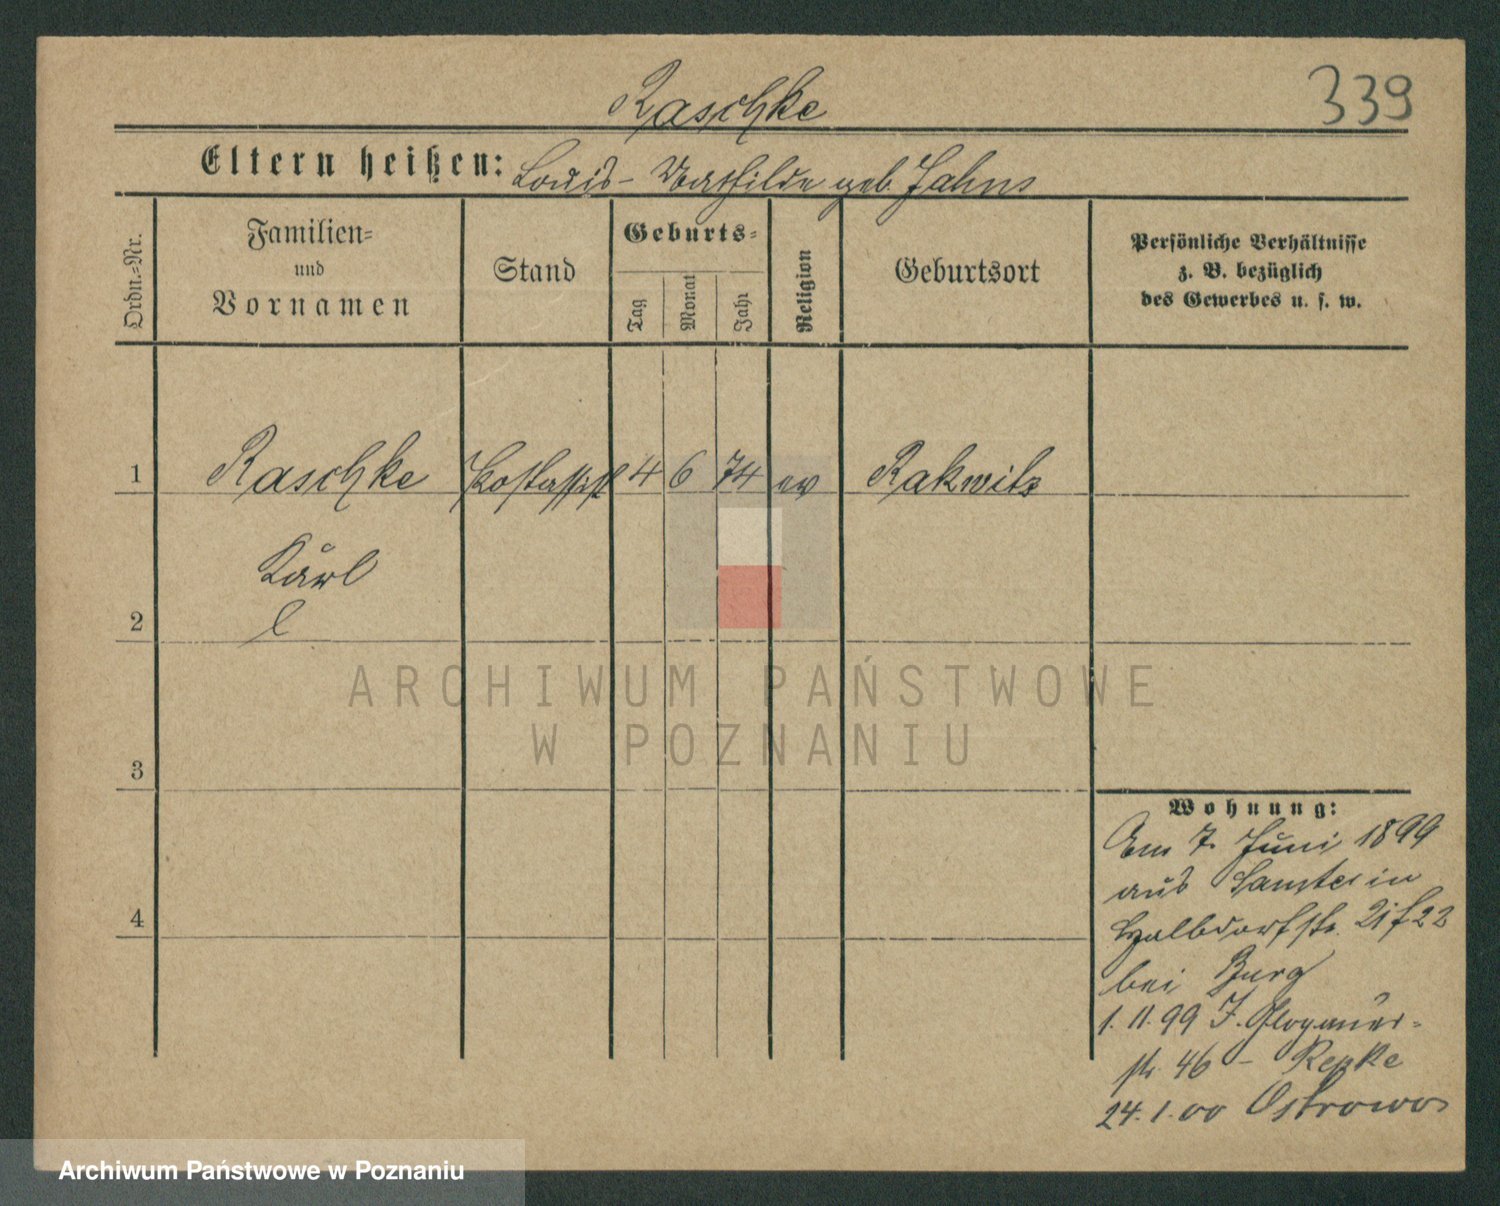 339
Raschke
Eltern heißen: Louis - Mathilde geb. Jahns
Ordn.-Nr.
Familien-
und
Vornamen
Stand
Geburts-
Tag
Monat
Jahr
Religion
Geburtsort
Persönliche Verhältnisse
z. B. bezüglich
des Gewerbes u. s. w.
1 Raschke Postassist 4 6 74 ev Rakwitz
Karl
l
2
3
4
Wohnung:
Am 7. Juni 1899
aus Samter in
Halbdorfstr. 22
bei Burg
1. 11. 99 J. Glogauer-
str. 46 - Repke
24. 1. 00 Ostrowo
ARCHIWUM PAŃSTWOWE
W POZNANIU
Archiwum Państwowe w Poznaniu